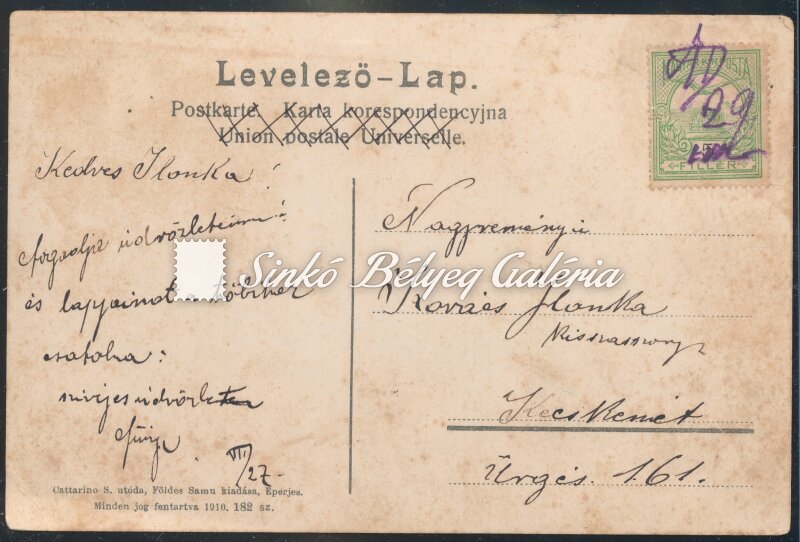 Levelező-Lap.
Postkarte. Karta korespondencyjna
Union postale Universelle.
5
FILLÉR
29
Kedves Ilonka!
fogadja üdvözleteimet!
és lapjaimat a többihez
csatolva:
szívjes üdvözlet
VII/27-
Cattarino S. utóda, Földes Samu kiadása, Eperjes.
Minden jog fentartva 1910. 182 sz.
Sinkó Bélyeg Galéria
Nagyreményü
Kovács Ilonka
kisasszony
Kecskemét
Ürgés. 161.